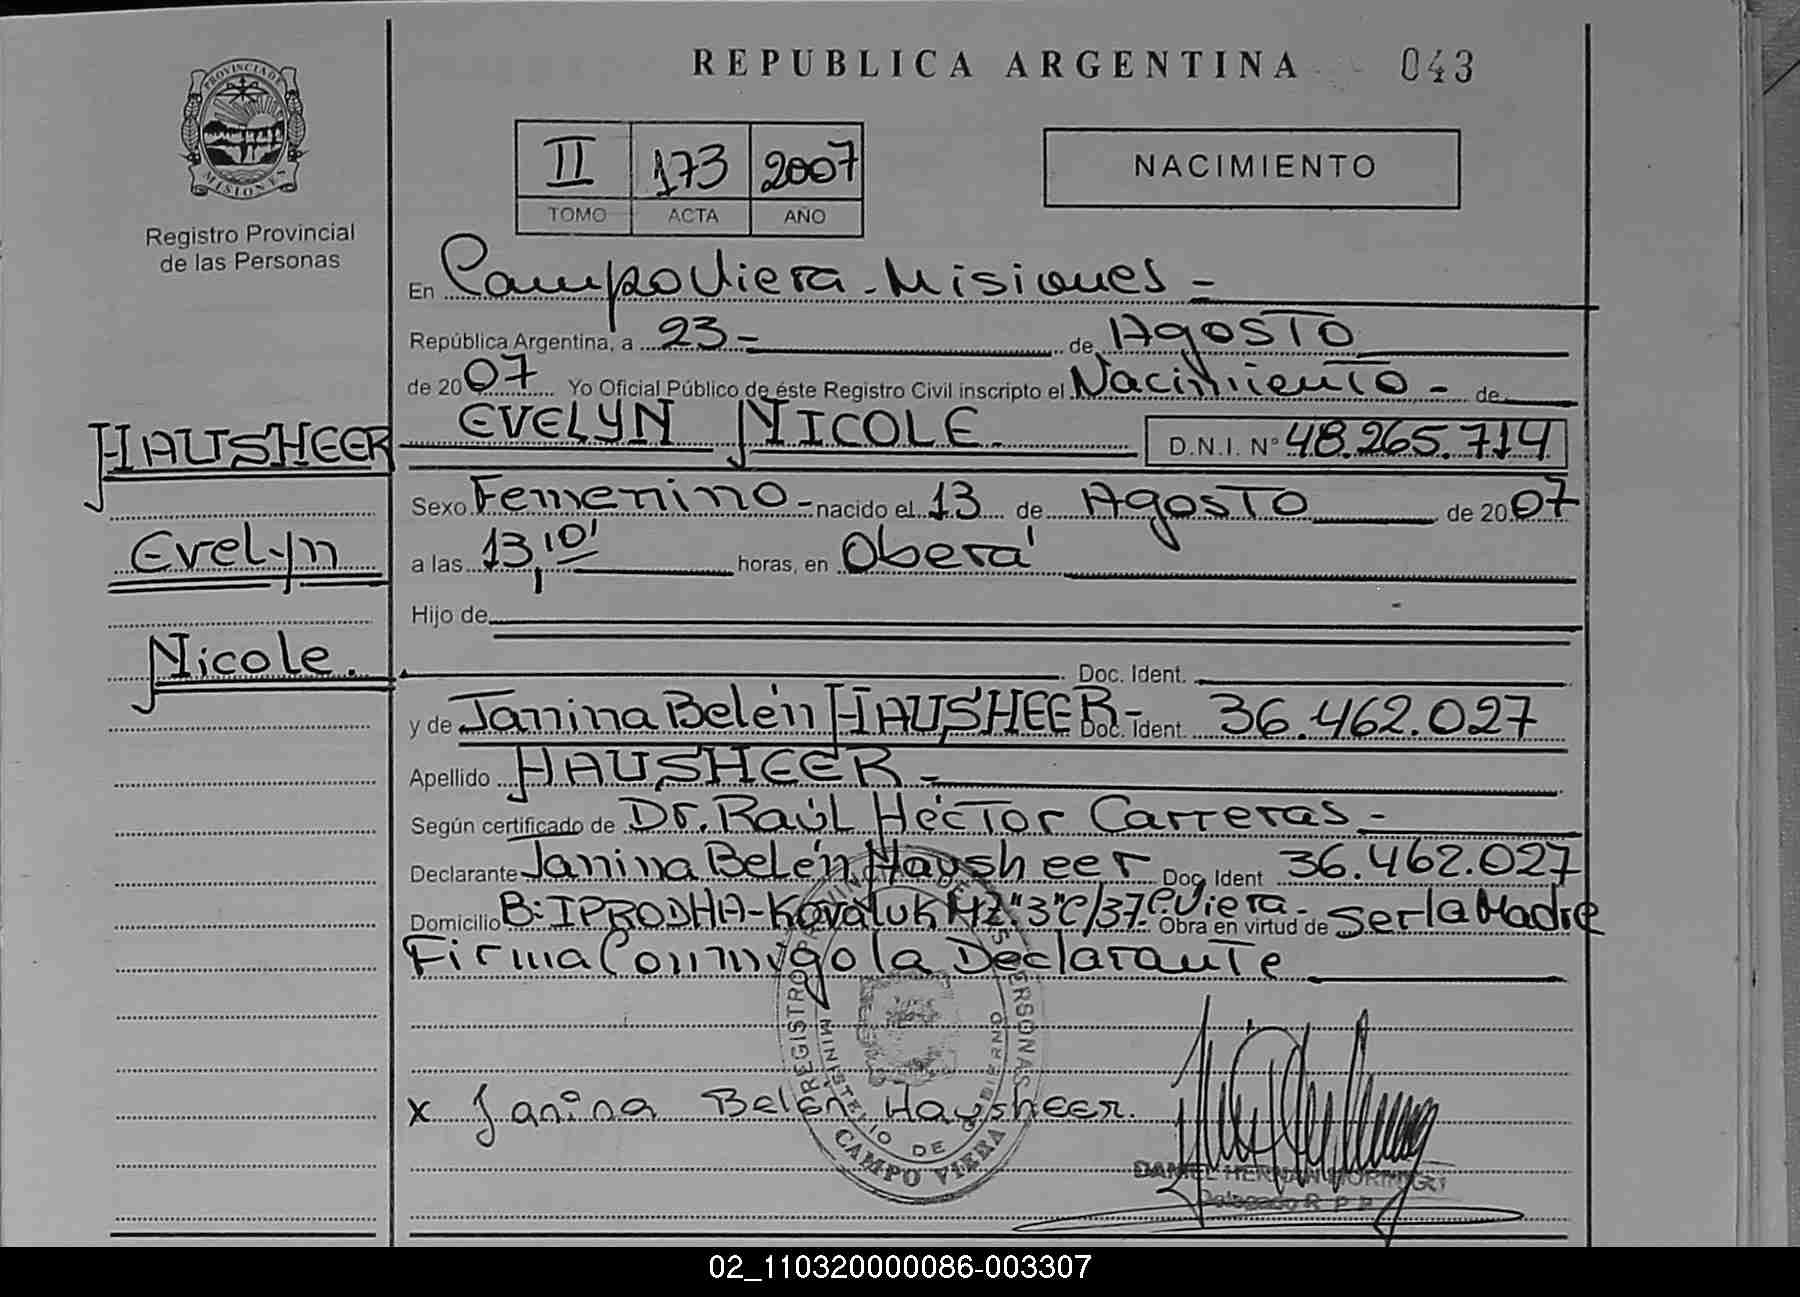 REPUBLICA ARGENTINA 043
PROVINCIA DE
MISIONES
Registro Provincial
de las Personas
II 173 2007
TOMO ACTA AÑO
NACIMIENTO
En Campo Viera - Misiones -
República Argentina, a 23 - de Agosto
de 2007 Yo Oficial Público de éste Registro Civil inscripto el Nacimiento - de
HAUSHEER
Evelyn
Nicole.
EVELYN NICOLE. D.N.I. N° 48.265.714
Sexo Femenino - nacido el 13 de Agosto de 2007
a las 13,10' horas, en Oberá
Hijo de
Doc. Ident.
y de Janina Belén HAUSHEER - Doc. Ident. 36.462.027
Apellido HAUSHEER -
Según certificado de Dr. Raúl Héctor Carreras -
Declarante Janina Belén Hausheer Doc. Ident 36.462.027
Domicilio B: IPRODHA - Kovaluk MZ "3" C/37 - C. Viera - Obra en virtud de Ser la Madre
Firma Conmigo la Declarante
x Janina Belén Hausheer.
REGISTRO PROVINCIAL DE LAS PERSONAS
MINISTERIO DE GOBIERNO
CAMPO VIERA
DANIEL HERNAN
Delegado R P P
02_110320000086-003307